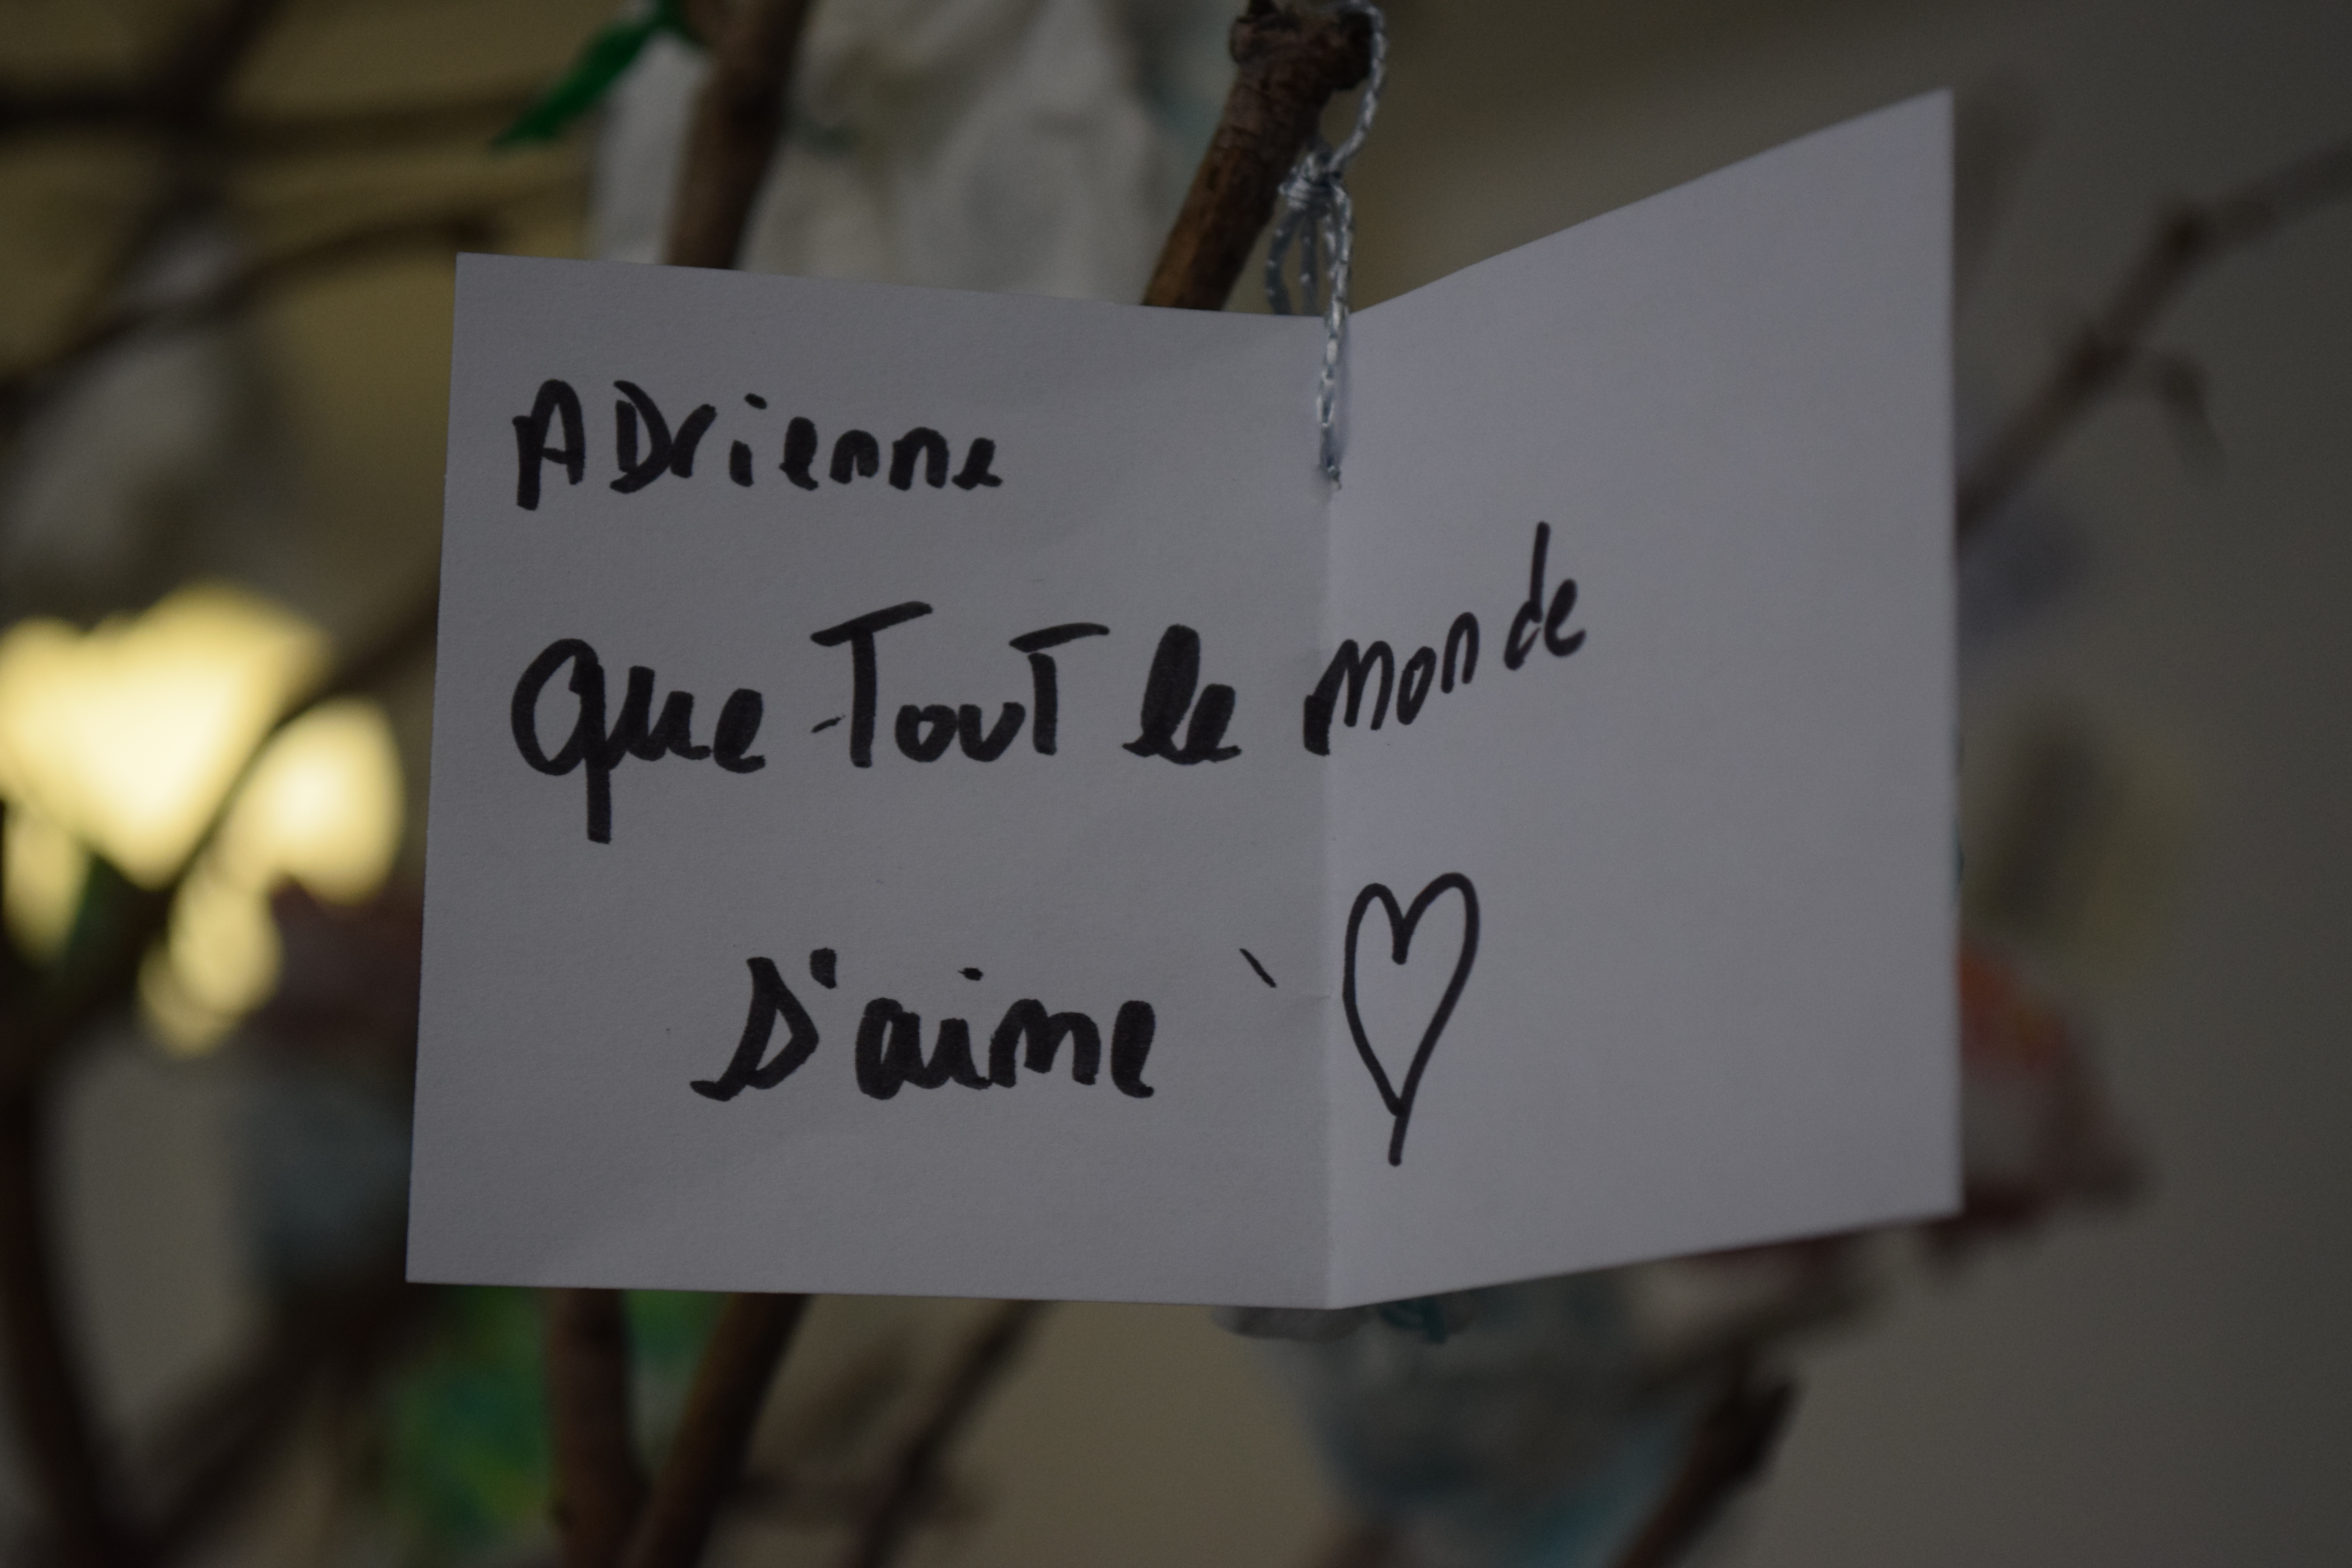 ADrienne
Que TouT le monde
S'aime